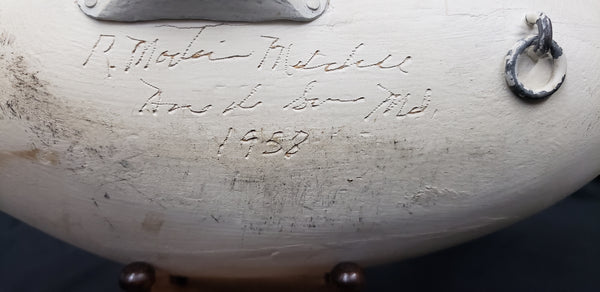 R. Madison Mitchell
Havre de Grace Md.
1958